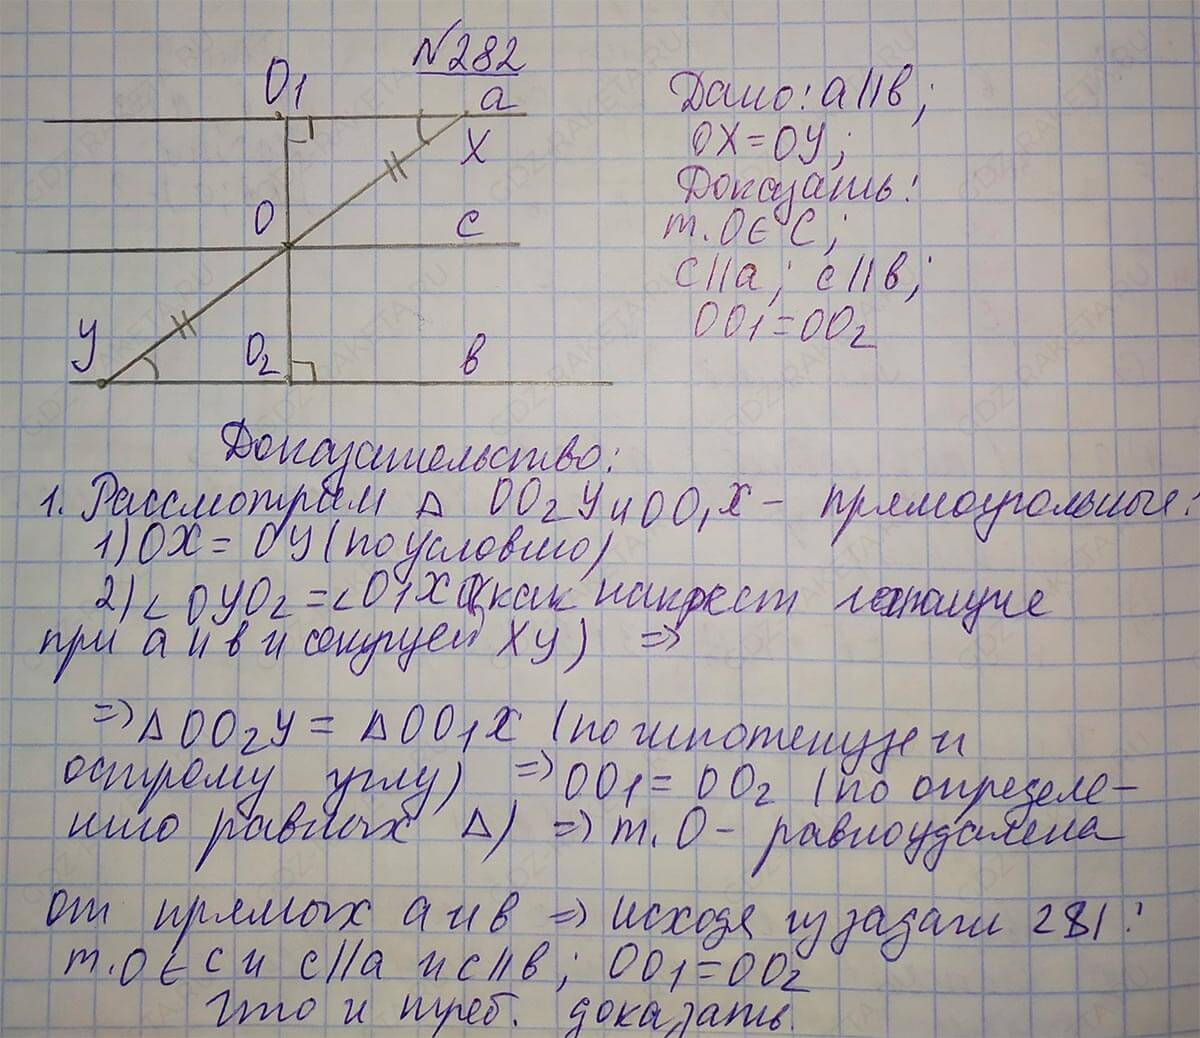 №282
O1
a
X
O
c
У
O2
в
Дано: a||в;
OX=OУ;
Доказать:
т.O∈C;
c||a; c||в;
OO1=OO2
Доказательство:
1. Рассмотрим Δ OO2У и OO1X – прямоугольные:
1) OX = OУ (по условию)
2) ∠OУO2 = ∠O1XO (как накрест лежащие
при a и в и секущей XУ) ⇒
⇒ Δ OO2У = Δ OO1X (по гипотенузе и
острому углу) ⇒ OO1 = OO2 (по определе-
нию равных Δ) ⇒ т. O – равноудалена
от прямых a и в ⇒ исходя из задачи 281:
т.O∈ c и c||a и c||в; OO1=OO2
Что и треб. доказать.
GDZ-RAKETA.RU